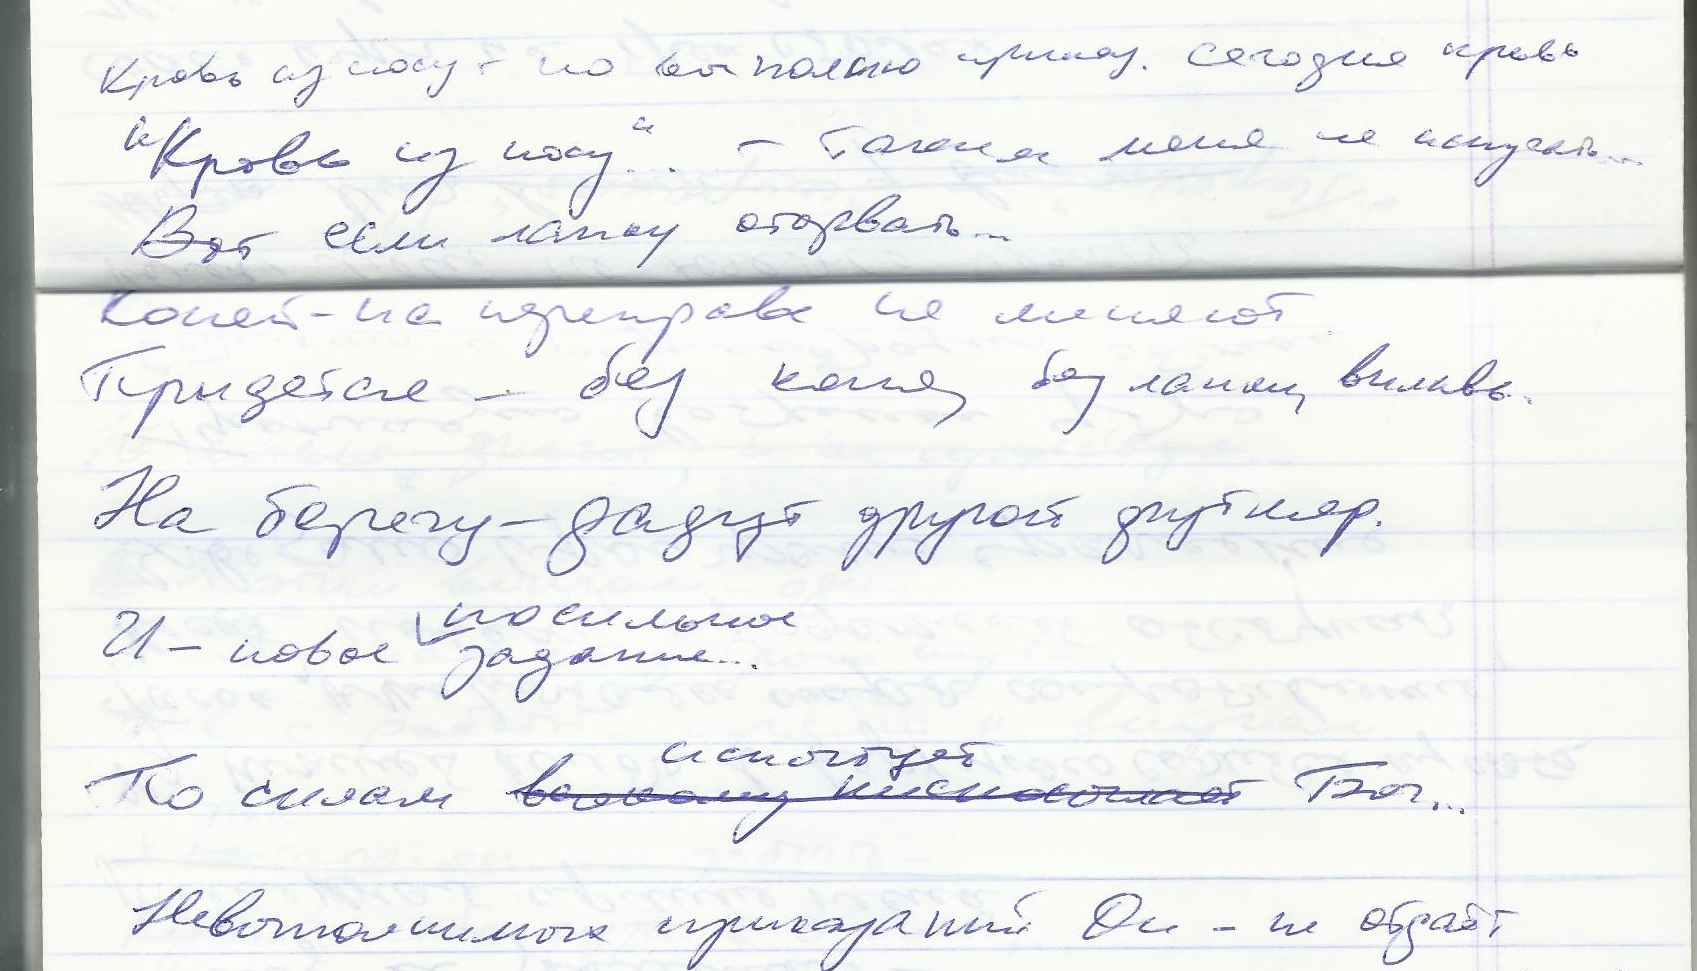 Кровь из носу - но выполню приказ. Сегодня кровь
"Кровь из носу"... - Таким меня не испугать...
Вот если лапку оторвать...
Коней - на переправе не меняют.
Придется - без коня, без лапки, вплавь.
На берегу - дадут другой футляр.
И - новое посильное
задание...
испытует
По силам Бог...
Невыполнимых приказаний Он - не отдаёт